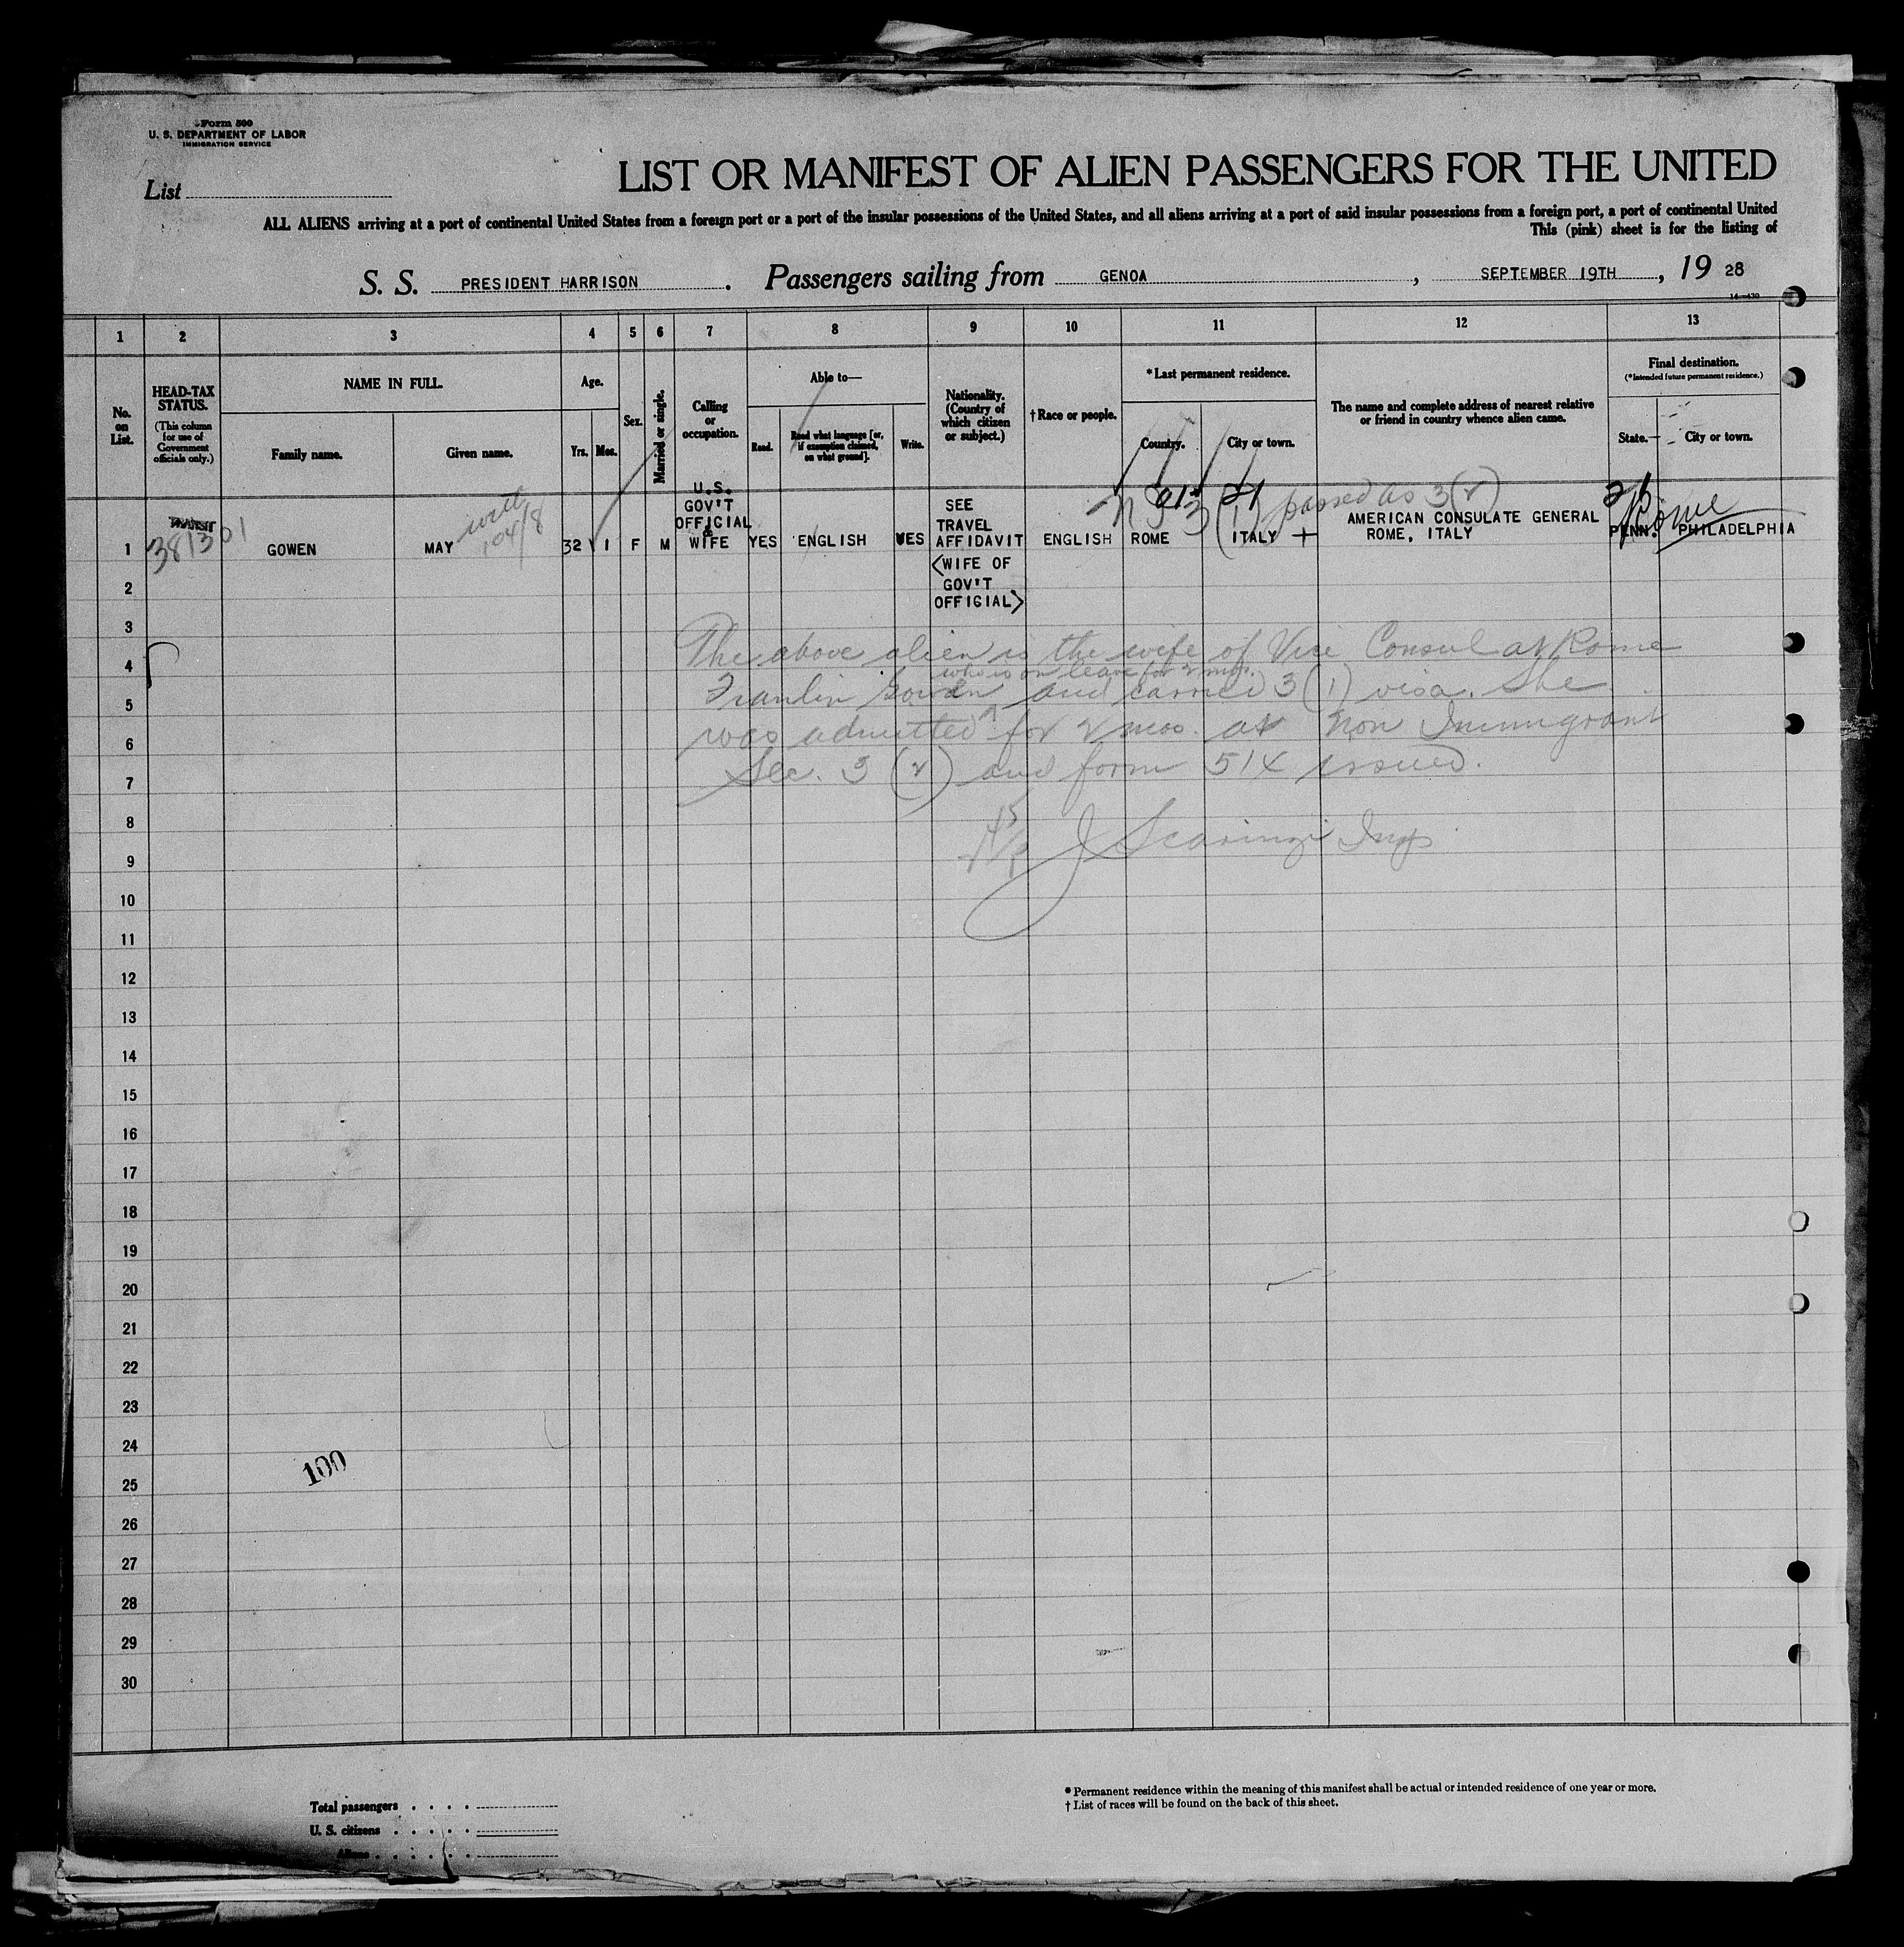 Form 500
U. S. DEPARTMENT OF LABOR
IMMIGRATION SERVICE
List
LIST OR MANIFEST OF ALIEN PASSENGERS FOR THE UNITED
ALL ALIENS arriving at a port of continental United States from a foreign port or a port of the insular possessions of the United States, and all aliens arriving at a port of said insular possessions from a foreign port, a port of continental United
This (pink) sheet is for the listing of
S. S. PRESIDENT HARRISON. Passengers sailing from GENOA, SEPTEMBER 19TH, 19 28
1 2 3 4 5 6 7 8 9 10 11 12 13
No. on List.
HEAD-TAX STATUS.
(This column for use of Government officials only.)
NAME IN FULL.
Family name. Given name.
Age.
Yrs. Mos.
Sex.
Married or single.
Calling or occupation.
Able to—
Read. Read what language [or, if exemption claimed, on what ground]. Write.
Nationality. (Country of which citizen or subject.)
†Race or people.
*Last permanent residence.
Country. City or town.
The name and complete address of nearest relative or friend in country whence alien came.
Final destination.
(*Intended future permanent residence.)
State. City or town.
TRANSIT
381301
with 104/8
3(1) passed as 3(2)
Rome
1 GOWEN MAY 32 1 F M U.S. GOV'T OFFICIAL & WIFE YES ENGLISH YES SEE TRAVEL AFFIDAVIT ENGLISH ROME ITALY + AMERICAN CONSULATE GENERAL ROME, ITALY PENN. PHILADELPHIA
<WIFE OF GOV'T OFFICIAL>
2
3
The above alien is the wife of Vice Consul at Rome
4
who is on leave for 2 mos.
Franlin Gowen and carried 3(1) visa. She
5
was admitted for 2 mos. as Non Immigrant
6
Sec. 3 (2) and form 514 issued.
7
8
J Scaringi Insp.
9
10
11
12
13
14
15
16
17
18
19
20
21
22
23
24
100
25
26
27
28
29
30
* Permanent residence within the meaning of this manifest shall be actual or intended residence of one year or more.
† List of races will be found on the back of this sheet.
Total passengers
U. S. citizens
Aliens